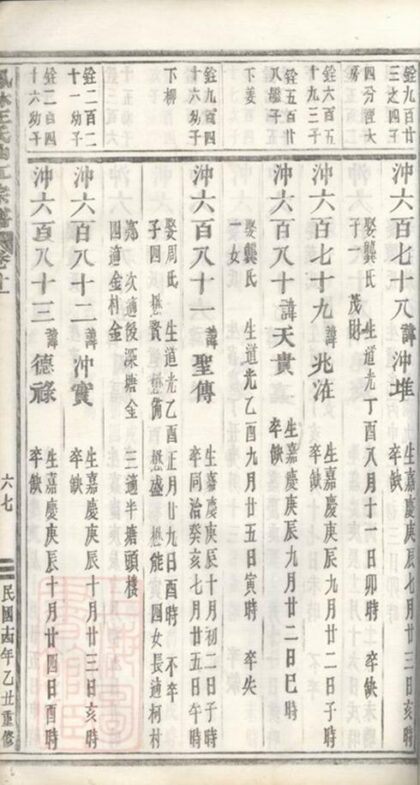 銓九百四十三之四子
冲六百七十八諱冲堆 生嘉慶庚辰八月廿三日亥時 卒缺
四分澄大房
娶龔氏 生道光丁酉八月十一日卯時 卒缺
子一 茂財
銓六百五十九三子
冲六百七十九諱兆淮 生嘉慶庚辰九月廿二日子時 卒缺
銓五百廿八繼子
冲六百八十諱天貴 生嘉慶庚辰九月廿二日巳時 卒缺
下姜
娶龔氏 生道光乙酉九月廿五日寅時 卒失
一女
銓九百四十六幼子
冲六百八十一諱聖傳 生嘉慶庚辰十月初二日子時 卒同治癸亥七月廿五日午時
下柳
娶周氏 生道光乙酉正月廿九日酉時 不卒
子四 懋賚 懋備 懋盛 懋能 四女長適柯村
鄭 次適後深塘金 三適半塘頭樓
四適金村金
銓二百二十一幼子
冲六百八十二諱冲寶 生嘉慶庚辰十月廿三日亥時 卒缺
銓二百四十六幼子
冲六百八十三諱德祿 生嘉慶庚辰十月廿四日酉時 卒缺
六七
民國十四年乙丑重修